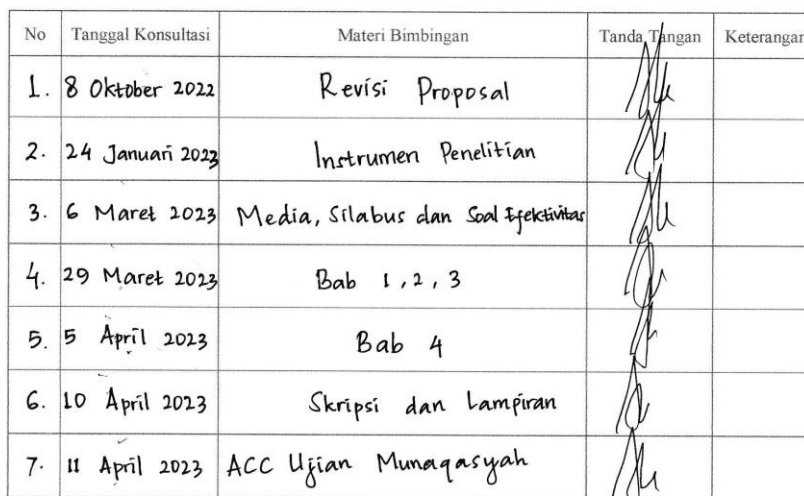 No Tanggal Konsultasi Materi Bimbingan Tanda Tangan Keterangan
1. 8 Oktober 2022 Revisi Proposal
2. 24 Januari 2023 Instrumen Penelitian
3. 6 Maret 2023 Media, Silabus dan Soal Efektivitas
4. 29 Maret 2023 Bab 1, 2, 3
5. 5 April 2023 Bab 4
6. 10 April 2023 Skripsi dan Lampiran
7. 11 April 2023 ACC Ujian Munaqasyah